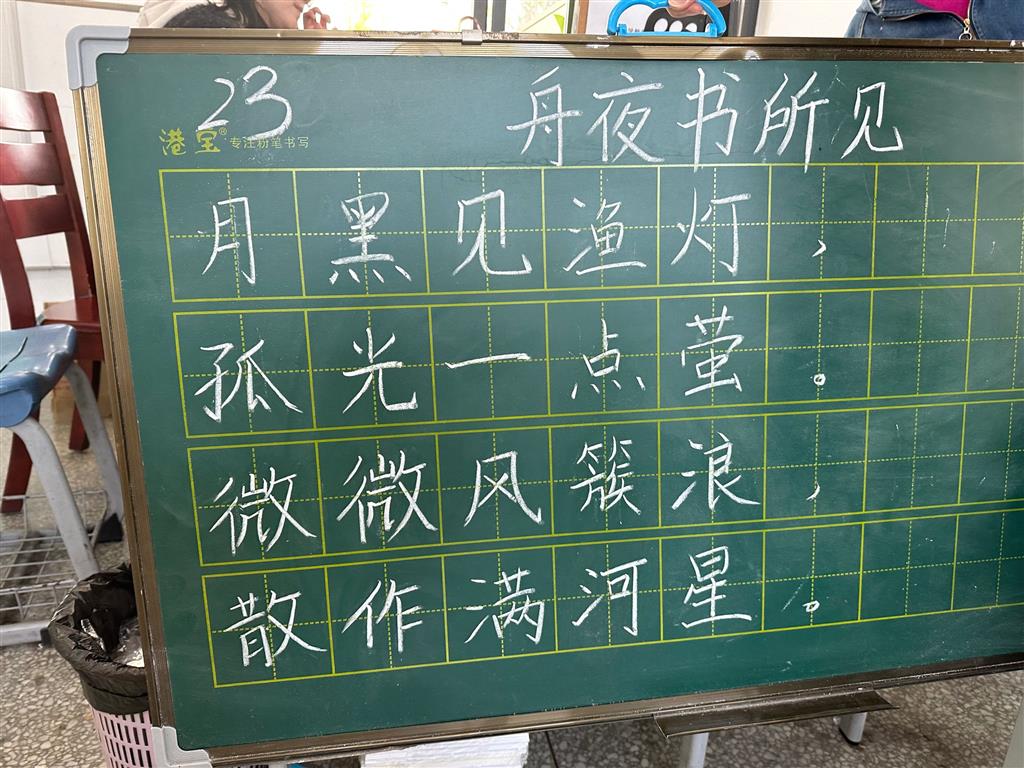 23 舟夜书所见
港宝® 专注粉笔书写
月黑见渔灯，
孤光一点萤。
微微风簇浪，
散作满河星。